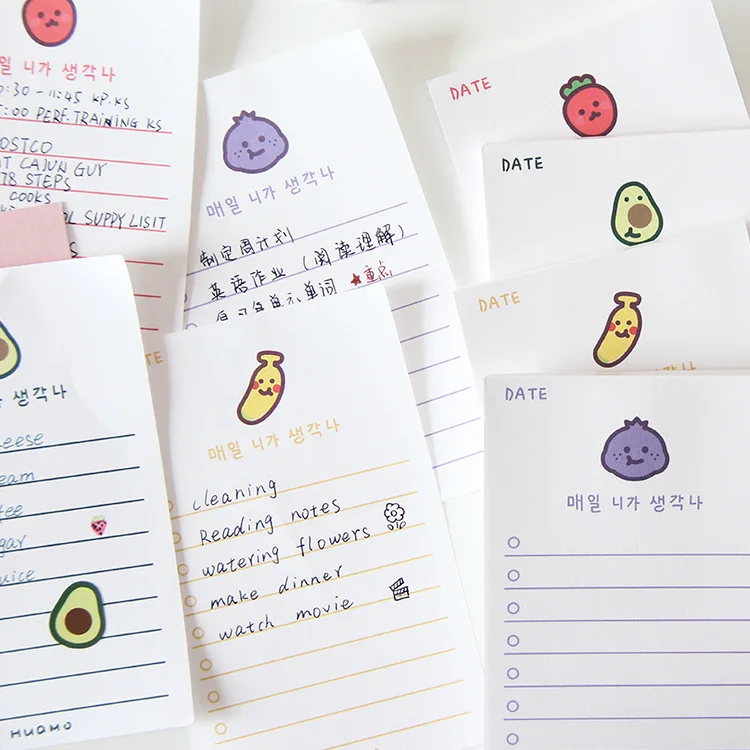 매일 니가 생각나
11:45 KP.KS
PERF.TRAINING KS
CAJUN GUY
78 STEPS
COOKS
SUPPY LISIT
매일 니가 생각나
制定周计划
英语作业（阅读理解）
复习各单示单词 ★重点
DATE
DATE
DATE
생각나
juice
HUAMO
매일 니가 생각나
cleaning
Reading notes
watering flowers
make dinner
watch movie
DATE
매일 니가 생각나